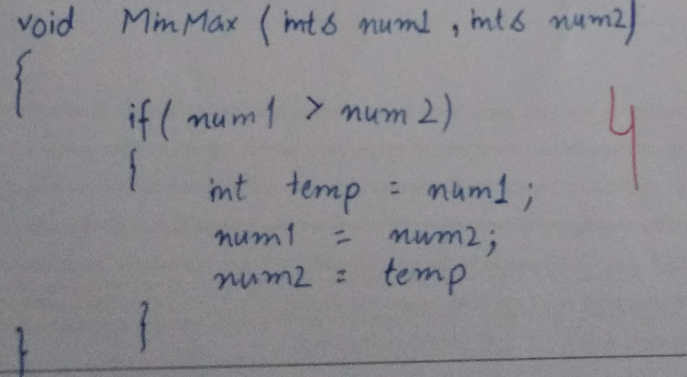 void MinMax (int& num1, int& num2)
{
if( num1 > num2)
4
{
int temp = num1;
num1 = num2;
num2 = temp
}
}